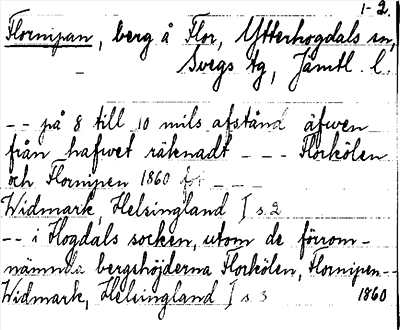 1-2.
Flornipan, berg å Flor, Ytterhogdals sn,
Svegs tg, Jämtl. l.
-- på 8 till 10 mils afstånd äfwen
från hafwet räknadt --- Florkölen
och Flornipen 1860 fot ---
Widmark, Helsingland I s. 2
-- i Hogdals socken, utom de förrom-
nämnda bergshöjderna Florkölen, Flornipen--
Widmark, Helsingland I s. 3 1860